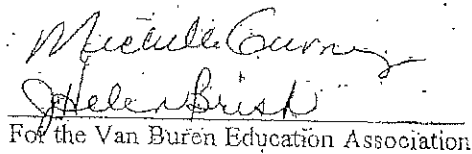 Michelle Gurney
Helen Brish
For the Van Buren Education Association